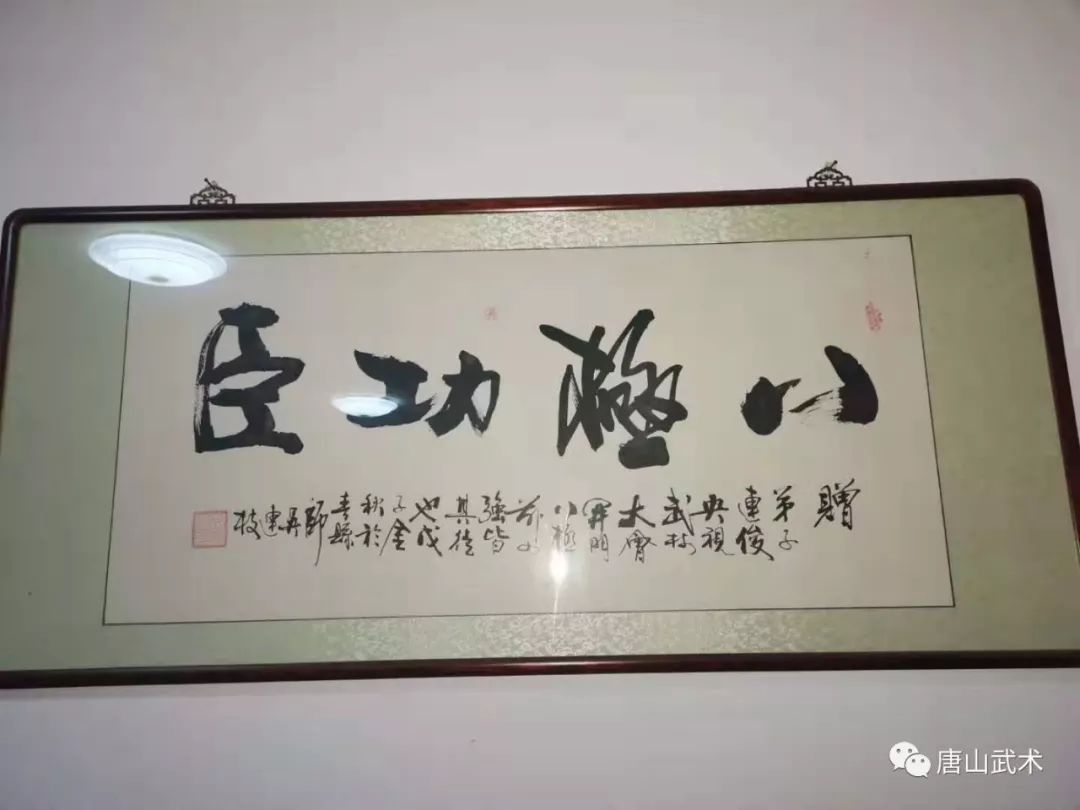 八極功臣
贈
弟子
連俊
央視
武林
大會
開門
八極
強皆
其徒
也戊
子金
秋於
孟縣
師吳連枝
唐山武术